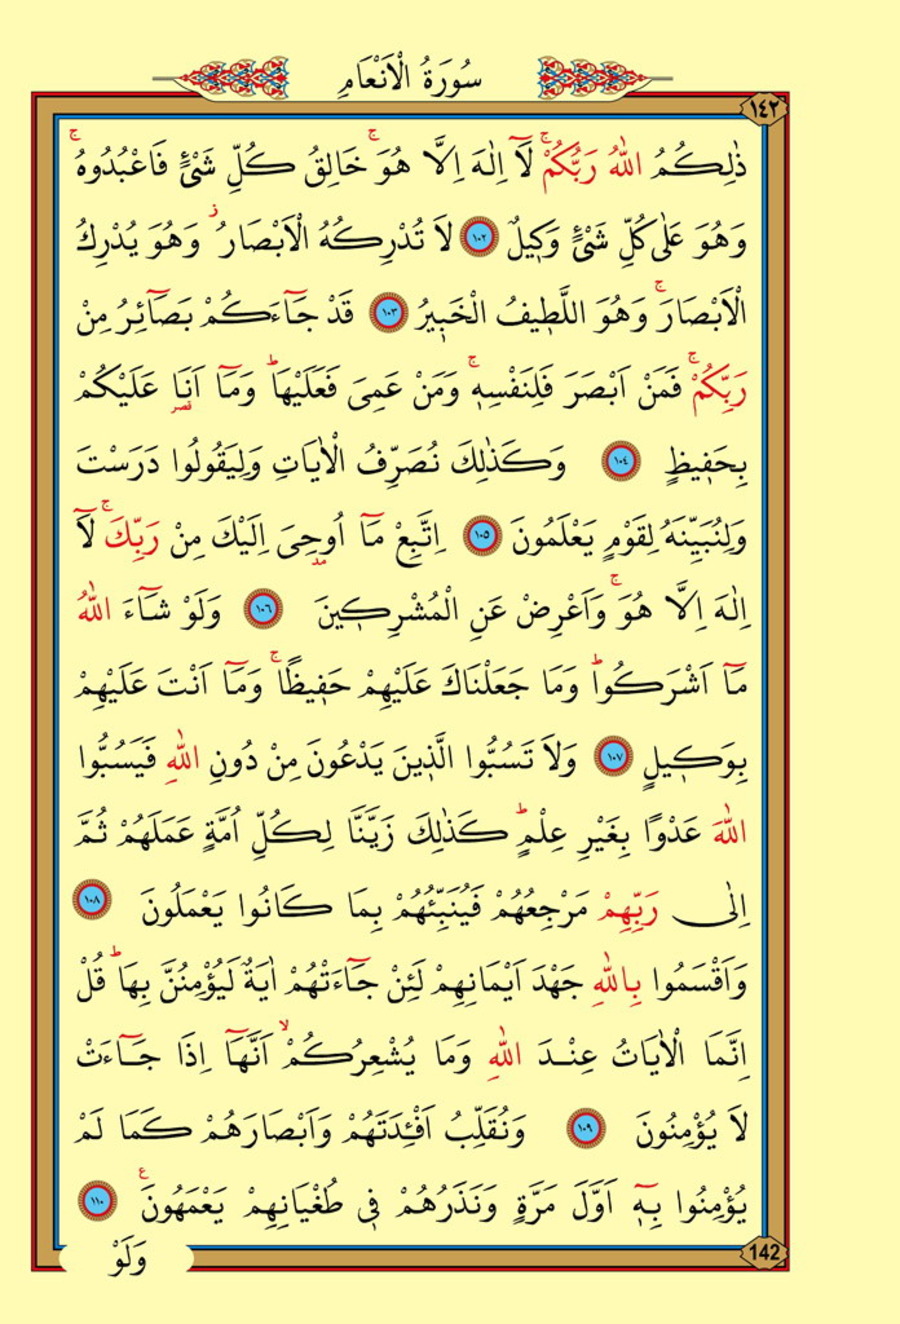 سُورَةُ الْاَنْعَامِ
١٤٢
ذٰلِكُمُ اللّٰهُ رَبُّكُمْۚ لَٓا اِلٰهَ اِلَّا هُوَۚ خَالِقُ كُلِّ شَيْءٍ فَاعْبُدُوهُۚ
وَهُوَ عَلٰى كُلِّ شَيْءٍ وَكٖيلٌ ١٠٢ لَا تُدْرِكُهُ الْاَبْصَارُؗ وَهُوَ يُدْرِكُ
الْاَبْصَارَۚ وَهُوَ اللَّطٖيفُ الْخَبٖيرُ ١٠٣ قَدْ جَٓاءَكُمْ بَصَٓائِرُ مِنْ
رَبِّكُمْۚ فَمَنْ اَبْصَرَ فَلِنَفْسِهٖۚ وَمَنْ عَمِيَ فَعَلَيْهَاؕ وَمَٓا اَنَا۬ عَلَيْكُمْ
بِحَفٖيظٍ ١٠٤ وَكَذٰلِكَ نُصَرِّفُ الْاٰيَاتِ وَلِيَقُولُوا دَرَسْتَ
وَلِنُبَيِّنَهُ لِقَوْمٍ يَعْلَمُونَ ١٠٥ اِتَّبِعْ مَٓا اُو۫حِيَ اِلَيْكَ مِنْ رَبِّكَۚ لَٓا
اِلٰهَ اِلَّا هُوَۚ وَاَعْرِضْ عَنِ الْمُشْرِكٖينَ ١٠٦ وَلَوْ شَٓاءَ اللّٰهُ
مَٓا اَشْرَكُواؕ وَمَا جَعَلْنَاكَ عَلَيْهِمْ حَفٖيظًاۚ وَمَٓا اَنْتَ عَلَيْهِمْ
بِوَكٖيلٍ ١٠٧ وَلَا تَسُبُّوا الَّذٖينَ يَدْعُونَ مِنْ دُونِ اللّٰهِ فَيَسُبُّوا
اللّٰهَ عَدْوًا بِغَيْرِ عِلْمٍؕ كَذٰلِكَ زَيَّنَّا لِكُلِّ اُمَّةٍ عَمَلَهُمْ ثُمَّ
اِلٰى رَبِّهِمْ مَرْجِعُهُمْ فَيُنَبِّئُهُمْ بِمَا كَانُوا يَعْمَلُونَ ١٠٨
وَاَقْسَمُوا بِاللّٰهِ جَهْدَ اَيْمَانِهِمْ لَئِنْ جَٓاءَتْهُمْ اٰيَةٌ لَيُؤْمِنُنَّ بِهَاؕ قُلْ
اِنَّمَا الْاٰيَاتُ عِنْدَ اللّٰهِ وَمَا يُشْعِرُكُمْۙ اَنَّهَٓا اِذَا جَٓاءَتْ
لَا يُؤْمِنُونَ ١٠٩ وَنُقَلِّبُ اَفْـِٔدَتَهُمْ وَاَبْصَارَهُمْ كَمَا لَمْ
يُؤْمِنُوا بِهٖٓ اَوَّلَ مَرَّةٍ وَنَذَرُهُمْ فٖي طُغْيَانِهِمْ يَعْمَهُونَࣖ ١١٠
142
وَلَوْ